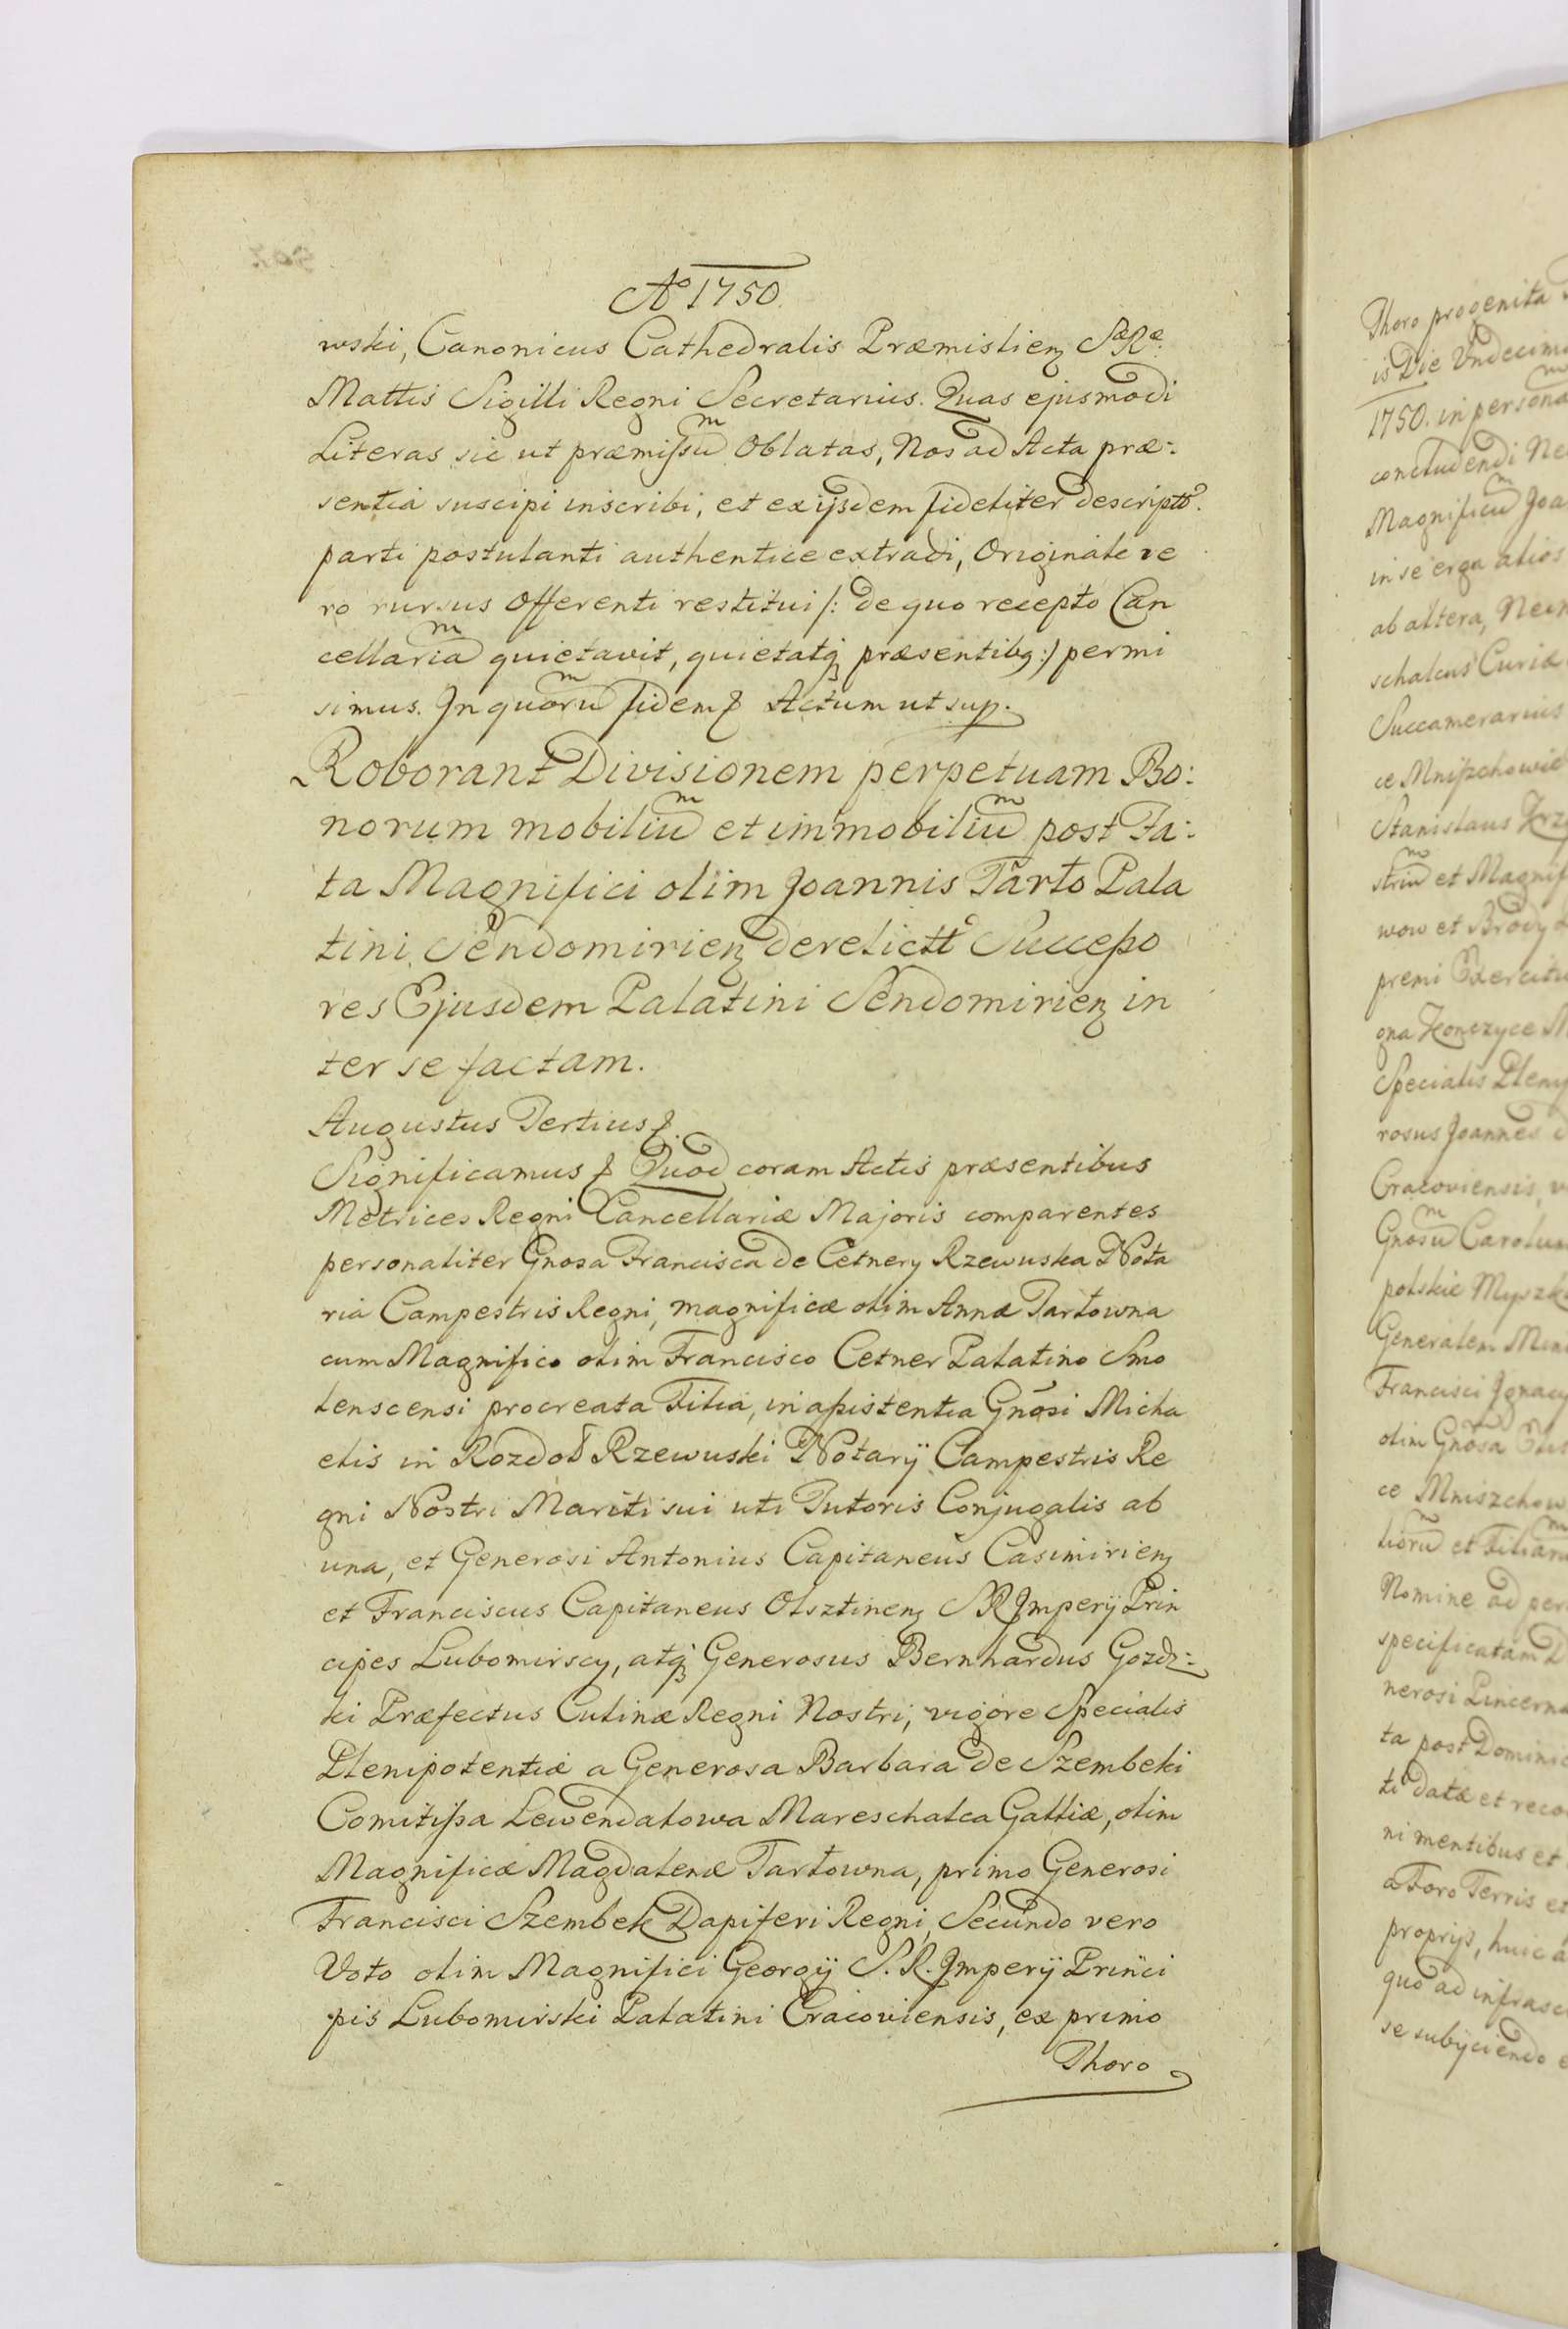 Aº 1750.
wski, Canonicus Cathedralis Præmislien̄ Sæ Ræ
Mattis Sigilli Regni Secretarius. Quas ejusmodi
Literas sic ut præmissuᵐ Oblatas, Nos ad Acta præ:
sentia suscipi inscribi, et ex ijsdem fideliter descriptº.
parti postulanti authentice extradi, Originale ve
ro rursus Offerenti restitui /: de quo recepto Can
cellariaᵐ quietavit, quietatq̨ præsentibq :/ permi
simus. In quoruᵐ fidem ꝑ Actum ut sup.
Roborant Divisionem perpetuam Bo:
norum mobiliuᵐ et immobiliuᵐ post Fa:
ta Magnifici olim Joannis Tarło Pala
tini Sendomirien̄ derelicttº Succeßo
res Ejusdem Palatini Sendomirien̄ in
ter se factam.
Augustus Tertius ꝑ.
Significamus ꝑ Quod coram Actis præsentibus
Metrices Regni Cancellariæ Majoris comparentes
personaliter Gnosa Francisca de Cetnery Rzewuska Nota
ria Campestris Regni, magnificæ olim Annæ Tarłowna
cum Magnifico olim Francisco Cetner Palatino Smo
lenscensi procreata Filia, in aßistentia Gnosi Micha
elis in Rozdoł Rzewuski Notarÿ Campestris Re
gni Nostri Mariti sui uti Tutoris Conjugalis ab
una, et Generosi Antonius Capitaneus Casimirien̄
et Franciscus Capitaneus Olsztinen̄ S R Imperÿ Prin
cipes Lubomirscy, atq̨ Generosus Bernhardus Gozdz:
ki Præfectus Culinæ Regni Nostri, vigore Specialis
Plenipotentiæ a Generosa Barbara de Szembeki
Comitißa Lewendalowa Mareschalca Galliæ, olim
Magnificæ Magdalenæ Tarłowna, primo Generosi
Francisci Szembek Dapiferi Regni, Secundo vero
Voto olim Magnifici Georgÿ S. R. Imperÿ Princi
pis Lubomirski Palatini Cracoviensis, ex primo
Thoro
Thoro progenita
is Die Undecima
1750. in persona
concludendi Nec
Magnificuᵐ Joa
in se erga alios
ab altera, Necn
schalcus Curiæ
Succamerarius
ce Mniszchowie
Stanislaus Krz
striuᵐ et Magnif
wow et Brody
premi Exercitu
gna Konczyce M
Specialis Pleni
rosus Joannes
Cracoviensis, v
Gnosuᵐ Carolum
polskie Myszk
Generalem Min
Francisci Ignacy
olim Gnosa
ce Mniszchow
lioruᵐ et Filiaru
Nomine ad per
specificatam D
nerosi Pincerna
ta post Dominic
ti datæ et reco
ni mentibus et
a Foro Terris et
proprÿs, huic a
quo ad infrasc
se subÿciendo e